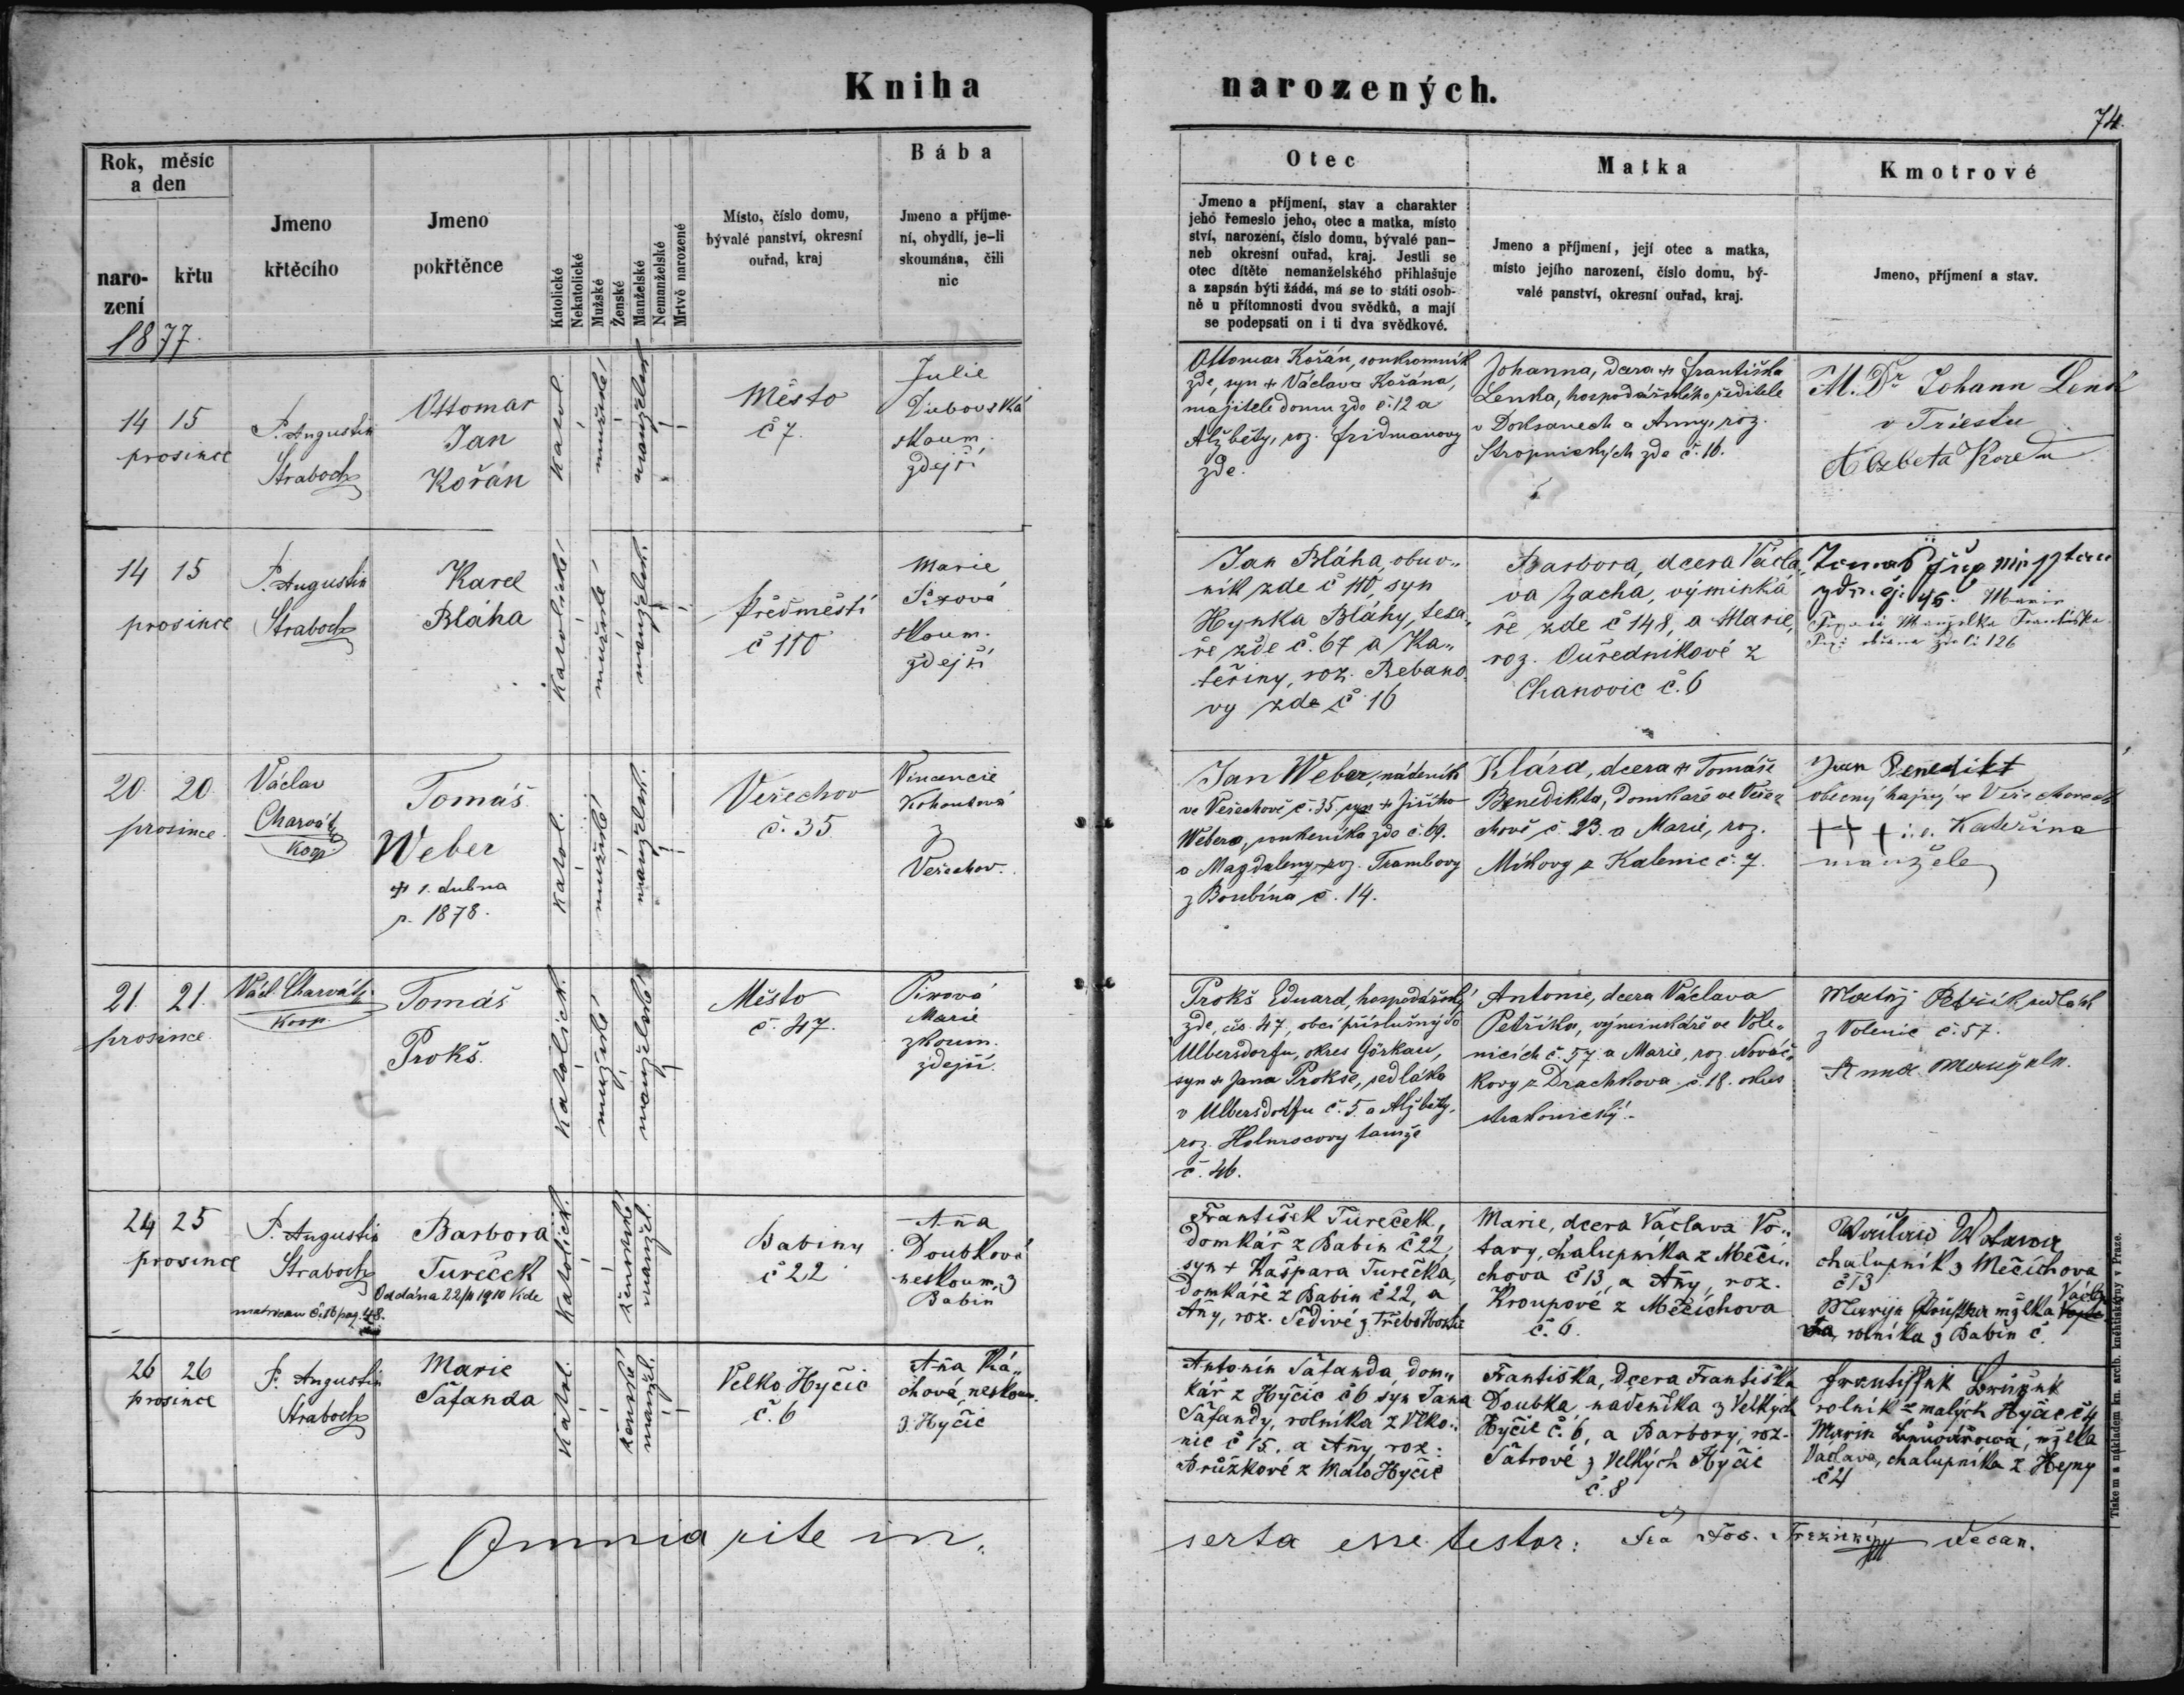 Kniha
narozených.
74.
Rok, měsíc
a den
naro-
zení
křtu
Jmeno
křtěcího
Jmeno
pokřtěnce
Katolické
Nekatolické
Mužské
Ženské
Manželské
Nemanželské
Mrtvě narozené
Místo, číslo domu,
bývalé panství, okresní
ouřad, kraj
Bába
Jmeno a příjme-
ní, obydlí, je-li
skoumána, čili
nic
Otec
Jmeno a příjmení, stav a charakter
jeho řemeslo jeho, otec a matka, místo
ství, narození, číslo domu, bývalé pan-
neb okresní ouřad, kraj. Jestli se
otec dítěte nemanželského přihlašuje
a zapsán býti žádá, má se to státi osob-
ně u přítomnosti dvou svědků, a mají
se podepsati on i ti dva svědkové.
Matka
Jmeno a příjmení, její otec a matka,
místo jejího narození, číslo domu, bý-
valé panství, okresní ouřad, kraj.
Kmotrové
Jmeno, příjmení a stav.
1877.
14 15
prosince
P. Augustin
Straboch
Ottomar
Jan
Kořán
katol.
mužské
manželsk.
Město
č 7.
Julie
Dubovská
skoum.
zdejší
Ottomar Kořán, soukromník
zde, syn + Václava Kořána,
majitele domu zde č. 12 a
Alžběty, roz. Fridmanovy
zde.
Johanna, dcera + Františka
Lenka, hospodářského ředitele
v Doksanech a Anny, roz.
Stropnických zde č. 16.
M. Dr Johann Lenk
v Triestu
14 15
prosince
P. Augustin
Straboch
Karel
Bláha
Katolické
mužské
manželsk.
Předměstí
č 110
Marie
Pixová
skoum.
zdejší
Jan Bláha, obuv„
ník zde č 110, syn
Hynka Bláhy, tesa„
ře zde č. 67 a Ka„
teřiny, roz. Rebano„
vy zde č 16
Barbora, dcera Václa„
va Zacha, výminká„
ře zde č 148, a Marie,
roz. Ouředníkové z
Chanovic č. 6
manželka Františka
126
20. 20.
prosince.
Václav
Charvát
koop.
Tomáš
Weber
+ 1. dubna
r. 1878.
katol.
mužské
manželsk.
Veřechov
č. 35
Vincencie
Kohoutová
z
Veřechov.
Jan Weber, nádeník
ve Veřechově č. 35, syn + Jiřího
Webera, soukeníka zde č. 69.
a Magdaleny, roz. Trambovy
z Boubína č. 14.
Klára, dcera + Tomáše
Benedikta, domkaře ve Veře„
chově č. 23. a Marie, roz.
Míkovy z Kalenic č. 7.
Jan Benedikt
obecný hajný ve Veřechovech
+++ i. e. Kateřina
manželé
21. 21.
prosince
Václ. Charvát
koop.
Tomáš
Prokš.
Katolick.
mužské
manželské
Město
č. 47.
Pixová
Marie
zkoum.
zdejší.
Prokš Eduard, hospodářský
zde, čís. 47, obcí příslušný do
Ulbersdorfu, okres Görkau,
syn + Jana Prokše, sedláka
v Ulbersdorfu č. 5. a Alžběty,
roz. Holmscovy tamže
č. 46.
Antonie, dcera Václava
Petříka, výminkáře ve Vole„
nicích č. 57. a Marie, roz. Nováč„
kovy z Drachkova č. 18. okres
strakonický.
Matěj Petřík sedlák
z Volenic č. 57.
Anna manželk.
24 25
prosince
P. Augustin
Straboch
Barbora
Tureček
Oddána 22/11 1910 Vide
Katolick.
ženské
manžel.
Babiny
č 22
Aňa
Doubková
neskoum. z
Babin
František Tureček,
domkář z Babin č 22,
syn + Kašpara Turečka,
domkáře z Babin č 22, a
Aňy, roz. Šedivé z Třebohostic
Marie, dcera Václava Vo„
tavy, chalupníka z Měči„
chova č 13, a Aňy, roz.
Kroupové z Měčíchova
č. 6.
chalupník z Měčichova
č 13
rolníka z Babin č.
26 26
prosince
P. Augustin
Straboch
Marie
Šafanda
Katol.
ženské
manžel.
Velko Hyčic
č. 6
Aňa Vlá„
chová, neskoum.
z Hyčic
Antonín Šafanda, dom„
kář z Hyčic č 6 syn Jana
Šafandy, rolníka z Vlko„
nic č 15. a Aňy, roz.
Brůžkové z Malo Hyčic
Františka, Dcera Františka
Doubka, nadeníka z Velkých
Hyčic č. 6, a Barbory, roz.
Šatrové z Velkých Hyčic
č. 8
rolník z malých Hyčic č 4
Václava, chalupníka z Hejny
č 4
Omnia rite in„
serta esse testor:
Děkan.
Tiskem a nákladem kn. arcib. knihtiskárny v Praze.